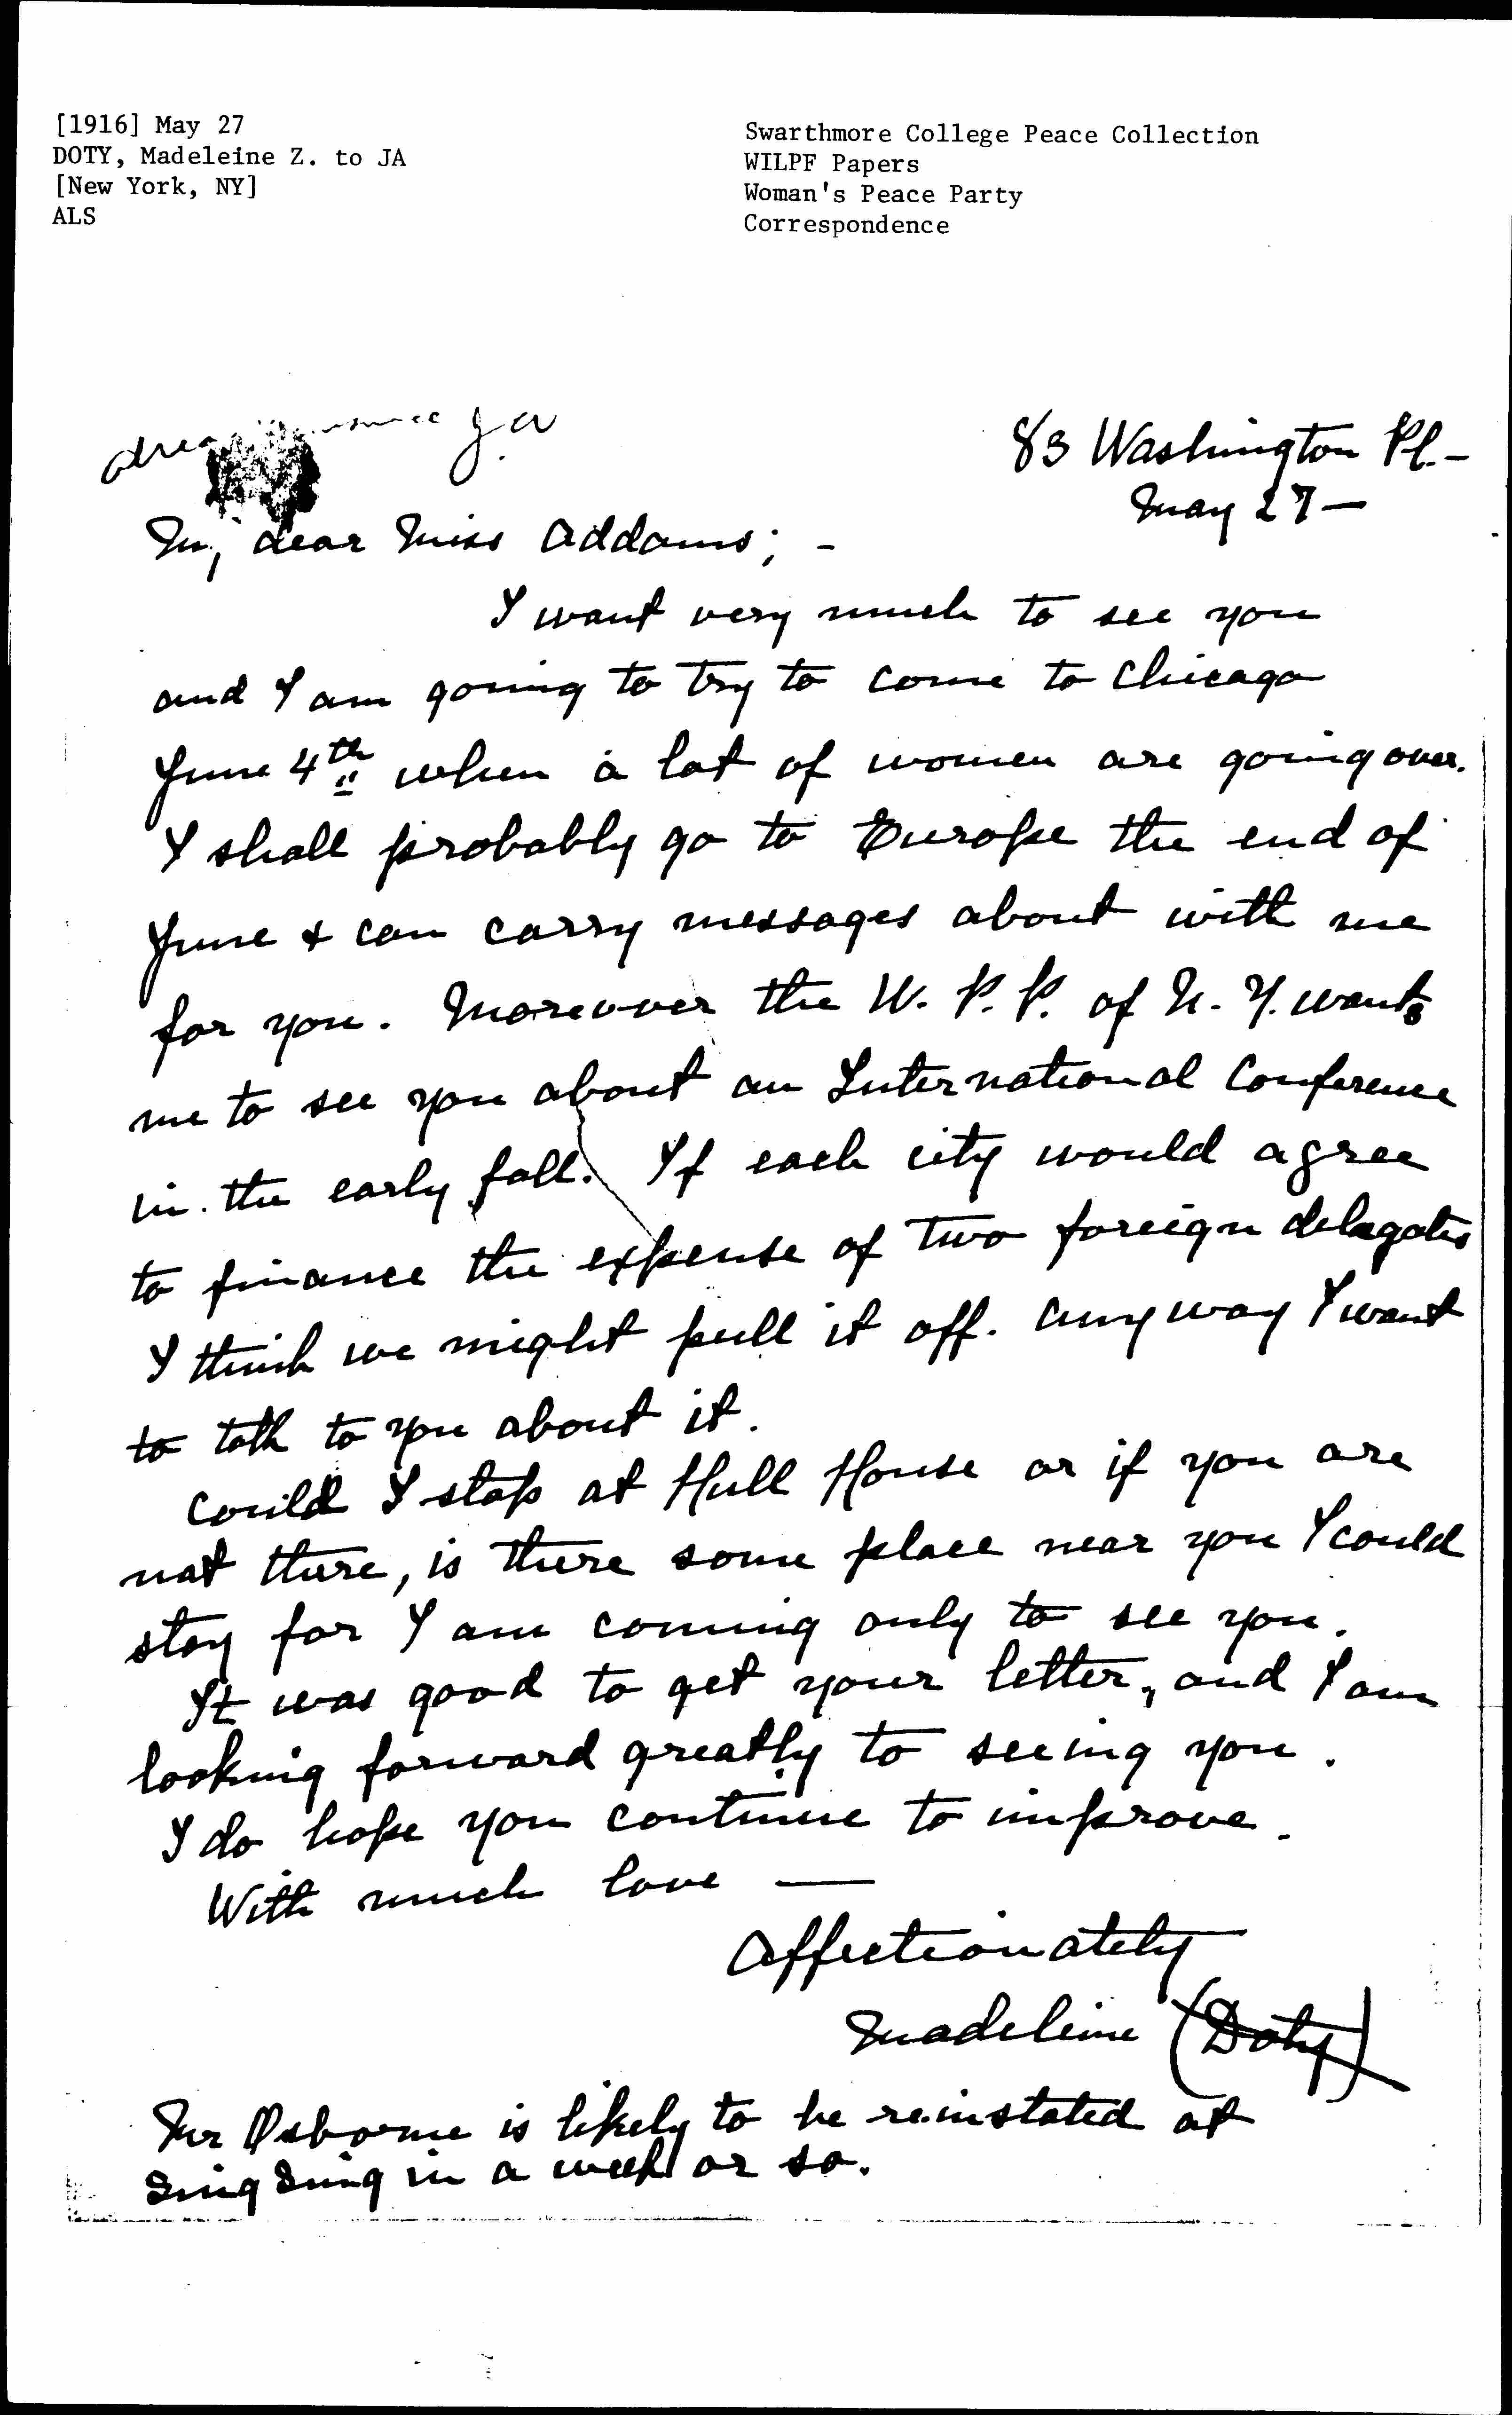 [1916] May 27
DOTY, Madeleine Z. to JA
[New York, NY]
ALS
Swarthmore College Peace Collection
WILPF Papers
Woman's Peace Party
Correspondence
83 Washington Pl. -
May 27 -
My dear Miss Addams; -
I want very much to see you
and I am going to try to come to Chicago
June 4th when a lot of women are going over.
I shall probably go to Europe the end of
June & can carry messages about with me
for you. Moreover the W. P. P. of N. Y. wants
me to see you about an International Conference
in the early fall. If each city would agree
to finance the expense of two foreign delegates
I think we might pull it off. Anyway I want
to talk to you about it.
Could I stop at Hull House or if you are
not there, is there some place near you I could
stay for I am coming only to see you.
It was good to get your letter, and I am
looking forward greatly to seeing you.
I do hope you continue to improve.
With much love —
Affectionately
Madeleine (Doty)
Mr Osborne is likely to be reinstated at
Sing Sing in a week or so.